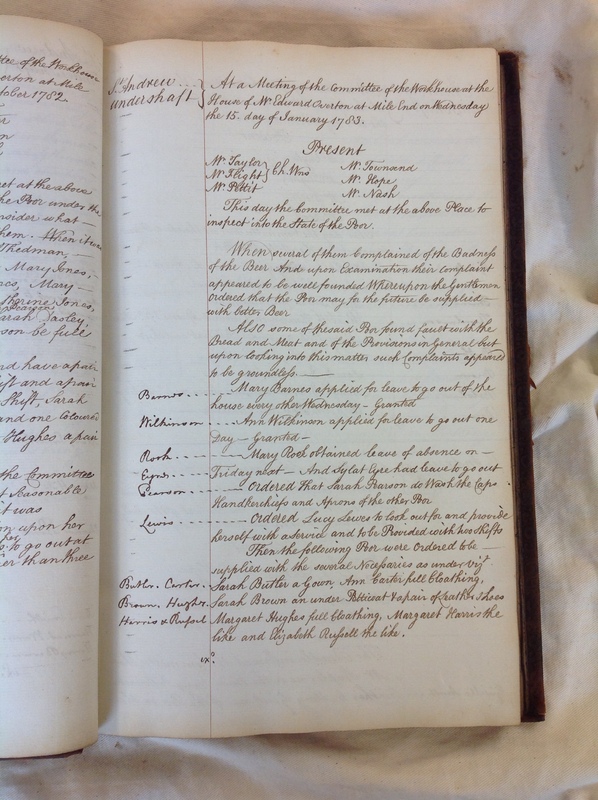 ee of the Workhouse
erton at Mile
tober 1782.
et at the above
he Poor under the
nsider what —
hem. When it was
Thedman, —
Mary Jones,
acs, Mary —
therine Jones,
arah Easley
son be full
nd have a pair
ift and a pair
Shift, Sarah
and one Coloured
Hughes a pair
the Committee
t Seasonable
it was
on upon her
to go out at
er than three
St. Andrew
Undershaft
At a Meeting of the Committee of the Workhouse at the
House of Mr. Edward Overton at Mile End on Wednesday
the 15. day of January 1783.
Present
Mr. Taylor
Mr. Flight } Ch. Wns
Mr. Pettit
Mr. Townsend
Mr. Hope
Mr. Nash
This day the Committee met at the above Place to
inspect into the State of the Poor.
When several of them Complained of the Badness
of the Beer And upon Examination their Complaint
appeared to be well founded Whereupon the Gentlemen
Ordered that the Poor may for the future be supplied —
with better Beer
Also some of the said Poor found fault with the
Bread and Meat and of the Provisions in General but
upon looking into this matter such Complaints appeared
to be groundless. —
Barnes - - - - Mary Barnes applied for leave to go out of the
house every other Wednesday — Granted
Wilkinson - - - - Ann Wilkinson applied for leave to go out one
Day — Granted —
Rook - - - - Mary Rook obtained leave of absence on —
Eyre - - - - Friday next — And Sylat Eyre had leave to go out
Pearson - - - - Ordered That Sarah Pearson do Wash the Caps
Handkerchiefs and Aprons of the other Poor
Lewis - - - - Ordered Lucy Lewes to look out for and provide
herself with a Service and to be Provided with two Shifts
Then the following Poor were Ordered to be —
supplied with the several Necessaries as under Vizt.
Butler. Carter. Sarah Butler a Gown, Ann Carter full Cloathing,
Brown. Hughs. Sarah Brown an under Petticoat & a pair of Leather Shoes
Harris & Russel Margaret Hughes full Cloathing, Margaret Harris the
like and Elizabeth Russell the like.
exd.